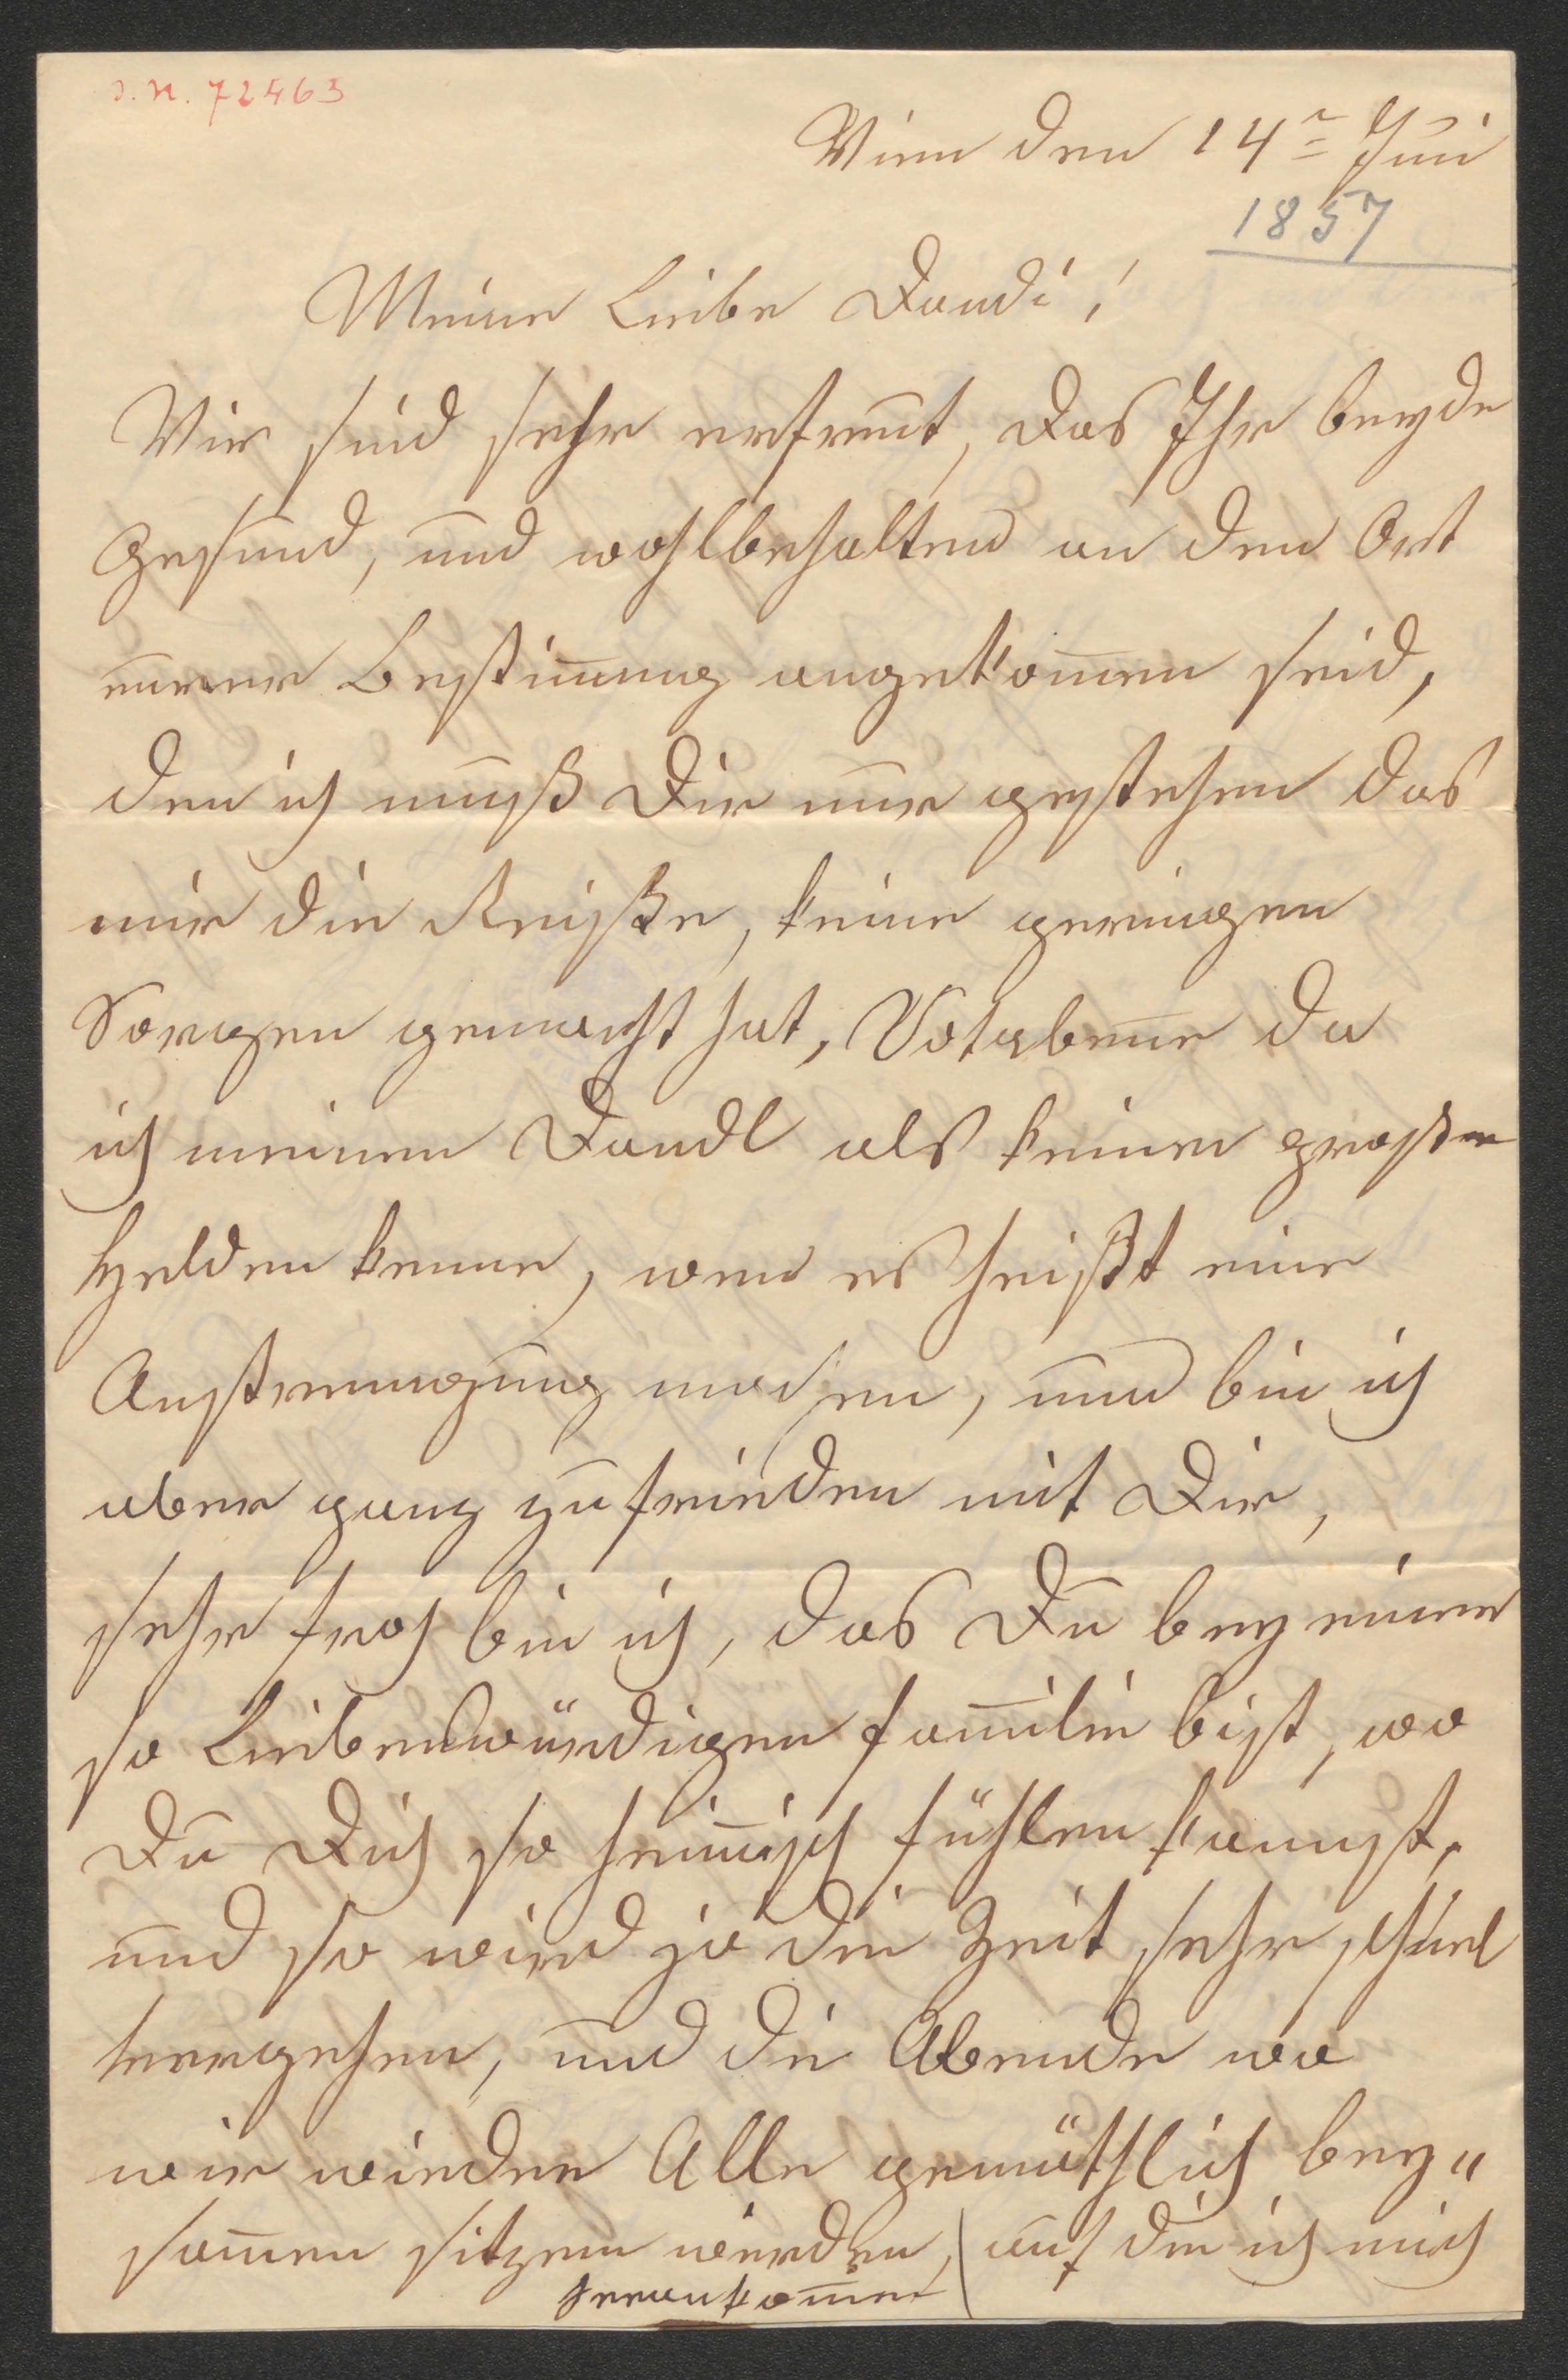 I. N. 72463
Wien den 14t Juni
1857
Meine Liebe Dandi!
Wir sind sehr erfreut, das Ihr beyde
Gesund, und wohlbehalten an den Ort
eurer Bestim̄ung angekom̄en seid,
den ich muß Dir nur gestehen das
mir die Reiße, keine geringen
Sorgen gemacht hat, Notabene da
ich meinen Dandl als keinen großen
Helden kenne, wen es heißt eine
Anstrengung machen, nun bin ich
aber ganz zufrieden mit Dir,
sehr froh bin ich, das Du bey einer
so Liebenswürdigen Familie bist, wo
Du Dich so heimisch fühlen kannst,
und so wird ja die Zeit sehr schnel
vergehen, und die Abende wo
wir wieder Alle gemüthlich bey„
sam̄en sitzen werden, auf die ich mich
herankom̄en